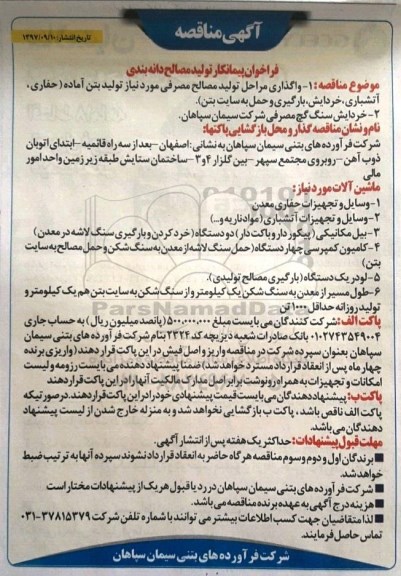 آگهی مناقصه
تاریخ انتشار: ۱۳۹۷/۰۹/۱۰
فراخوان پیمانکار تولید مصالح دانه بندی
موضوع مناقصه: ۱- واگذاری مراحل تولید مصالح مصرفی مورد نیاز تولید بتن آماده (حفاری،
آتشباری، خردایش، بارگیری و حمل به سایت بتن).
۲- خردایش سنگ گچ مصرفی شرکت سیمان سپاهان.
نام و نشان مناقصه گذار و محل بازگشایی پاکتها:
شرکت فرآورده های بتنی سیمان سپاهان به نشانی: اصفهان - بعد از سه راه قائمیه - ابتدای اتوبان
ذوب آهن - روبروی مجتمع سپهر - بین گلزار ۲ و ۳ - ساختمان ستایش طبقه زیر زمین واحد امور
مالی
ماشین آلات مورد نیاز:
۱- وسایل و تجهیزات حفاری معدن
۲- وسایل و تجهیزات آتشباری (مواد ناریه و...)
۳- بیل مکانیکی (پیکور دار و باکت دار) دو دستگاه (خرد کردن و بارگیری سنگ لاشه در معدن)
۴- کامیون کمپرسی چهار دستگاه (حمل سنگ لاشه از معدن به سنگ شکن و حمل مصالح به سایت
بتن)
۵- لودر یک دستگاه (بارگیری مصالح تولیدی).
۶- طول مسیر از معدن به سنگ شکن یک کیلومتر و از سنگ شکن به سایت بتن هم یک کیلومتر و
تولید روزانه حداقل ۱۰۰۰ تن
پاکت الف: شرکت کنندگان می بایست مبلغ ۵۰۰.۰۰۰.۰۰۰ (پانصد میلیون ریال) به حساب جاری
۰۱۰۲۷۴۳۵۴۹۰۰۴ بانک صادرات شعبه دیزیچه کد ۲۳۲۴ بنام شرکت فرآورده های بتنی سیمان
سپاهان بعنوان سپرده شرکت در مناقصه واریز و اصل فیش در این پاکت قرار دهند (واریزی برنده
چهار ماه پس از انعقاد قرارداد مسترد خواهد شد) ضمنا پیشنهاد دهنده می بایست رزومه و لیست
امکانات و تجهیزات به همراه رونوشت برابر اصل مدارک مالکیت آنها را در این پاکت قرار دهند
پاکت ب: پیشنهاد دهندگان می بایست قیمت پیشنهادی خود را در این پاکت قرار دهند. در صورتیکه
پاکت الف ناقص باشد، پاکت ب بازگشایی نخواهد شد و به منزله خارج شدن از لیست پیشنهاد
دهندگان می باشد.
مهلت قبول پیشنهادات: حداکثر یک هفته پس از انتشار آگهی.
■ برندگان اول و دوم و سوم مناقصه هرگاه حاضر به انعقاد قرارداد نشوند سپرده آنها به ترتیب ضبط
خواهد شد.
■ شرکت فرآورده های بتنی سیمان سپاهان در رد یا قبول هر یک از پیشنهادات مختار است
■ هزینه درج آگهی به عهده برنده مناقصه می باشد.
■ لذا متقاضیان جهت کسب اطلاعات بیشتر می توانند با شماره تلفن شرکت ۳۷۸۱۵۳۷۹-۰۳۱
تماس حاصل فرمایند.
شرکت فرآورده های بتنی سیمان سپاهان